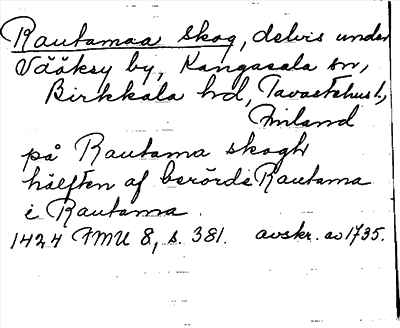 Rautamaa skog, delvis under
Vääksy by, Kangasala sn,
Birkkala hd, Tavastehus l.,
Finland
på Rautama skogh
hälften af berörde Rautama
i Rautama.
1424 FMU 8, s. 381. avskr. av 1735.